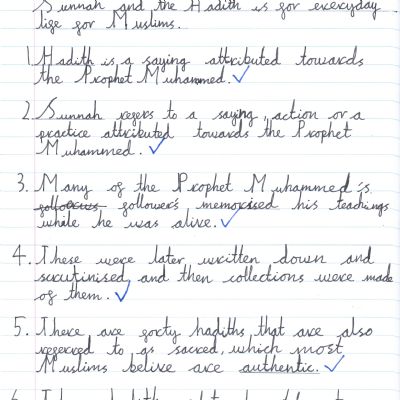 Sunnah and the Hadith is for everyday
life for Muslims.
1. Hadith is a saying attributed towards
the Prophet Muhammed.
2. Sunnah refers to a saying, action or a
practice attributed towards the Prophet
Muhammed.
3. Many of the Prophet Muhammed's
followers memorised his teachings
while he was alive.
4. These were later written down and
scrutinised and then collections were made
of them.
5. There are forty hadiths that are also
referred to as sacred, which most
Muslims belive are authentic.